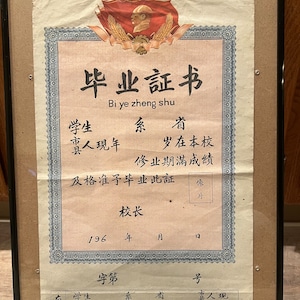 毕业証书
Bi ye zheng shu
学生 系 省
市
县 人现年 岁在本校
修业期满成绩
及格准予毕业此証
校长
196 年 月 日
字第 号
学生 系 省 县人现